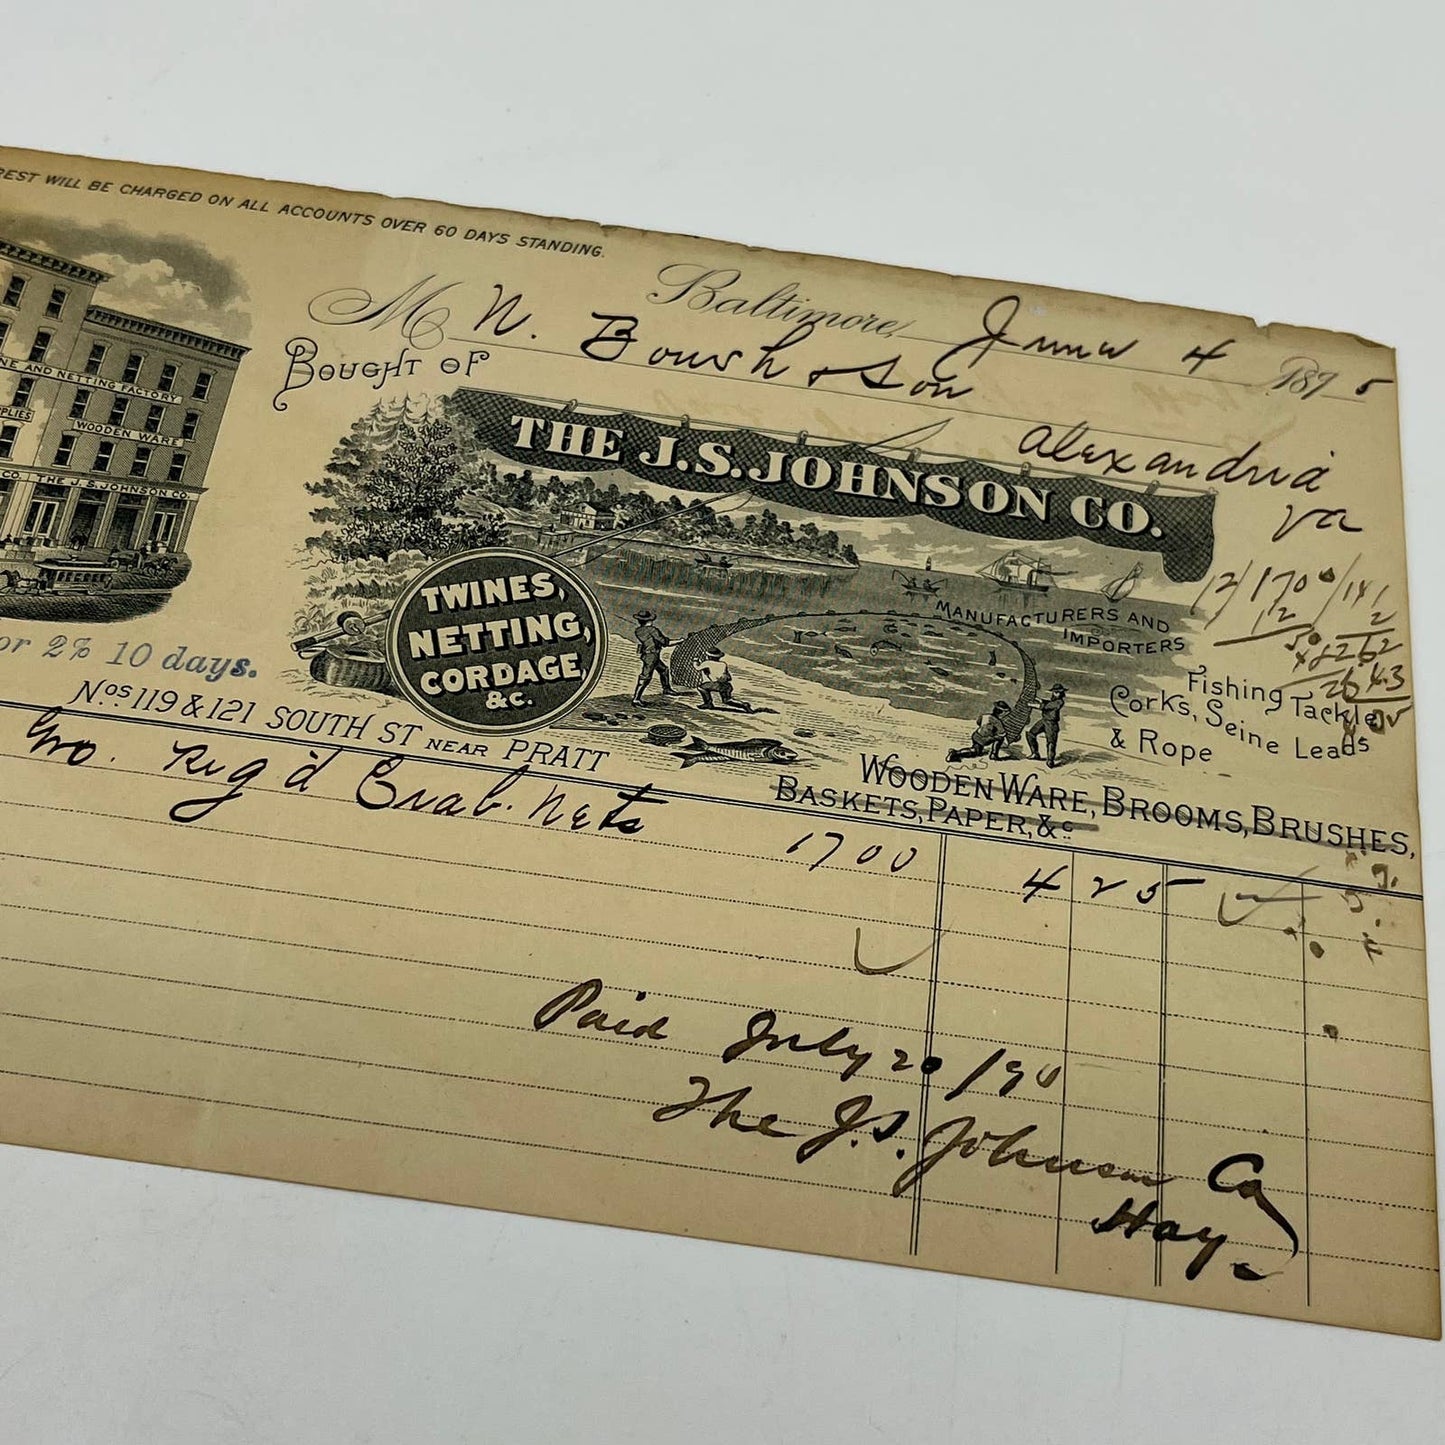 REST WILL BE CHARGED ON ALL ACCOUNTS OVER 60 DAYS STANDING.
Baltimore, June 4 1895
M N. Boush & Son
Alexandria
Va
Bought of
THE J.S. JOHNSON CO.
NE AND NETTING FACTORY
PPLIES
WOODEN WARE
CO. THE J.S. JOHNSON CO.
TWINES,
NETTING,
CORDAGE,
&C.
MANUFACTURERS AND
IMPORTERS
Fishing Tackle
Corks, Seine Leads
& Rope
or 2% 10 days.
Nos 119 & 121 SOUTH ST NEAR PRATT
WOODEN WARE, BROOMS, BRUSHES,
BASKETS, PAPER, &c
12/1700/141
12
Gro. Rig'd Crab Nets 1700 4 25
Paid July 20/95
The J.S. Johnson Co
Hay